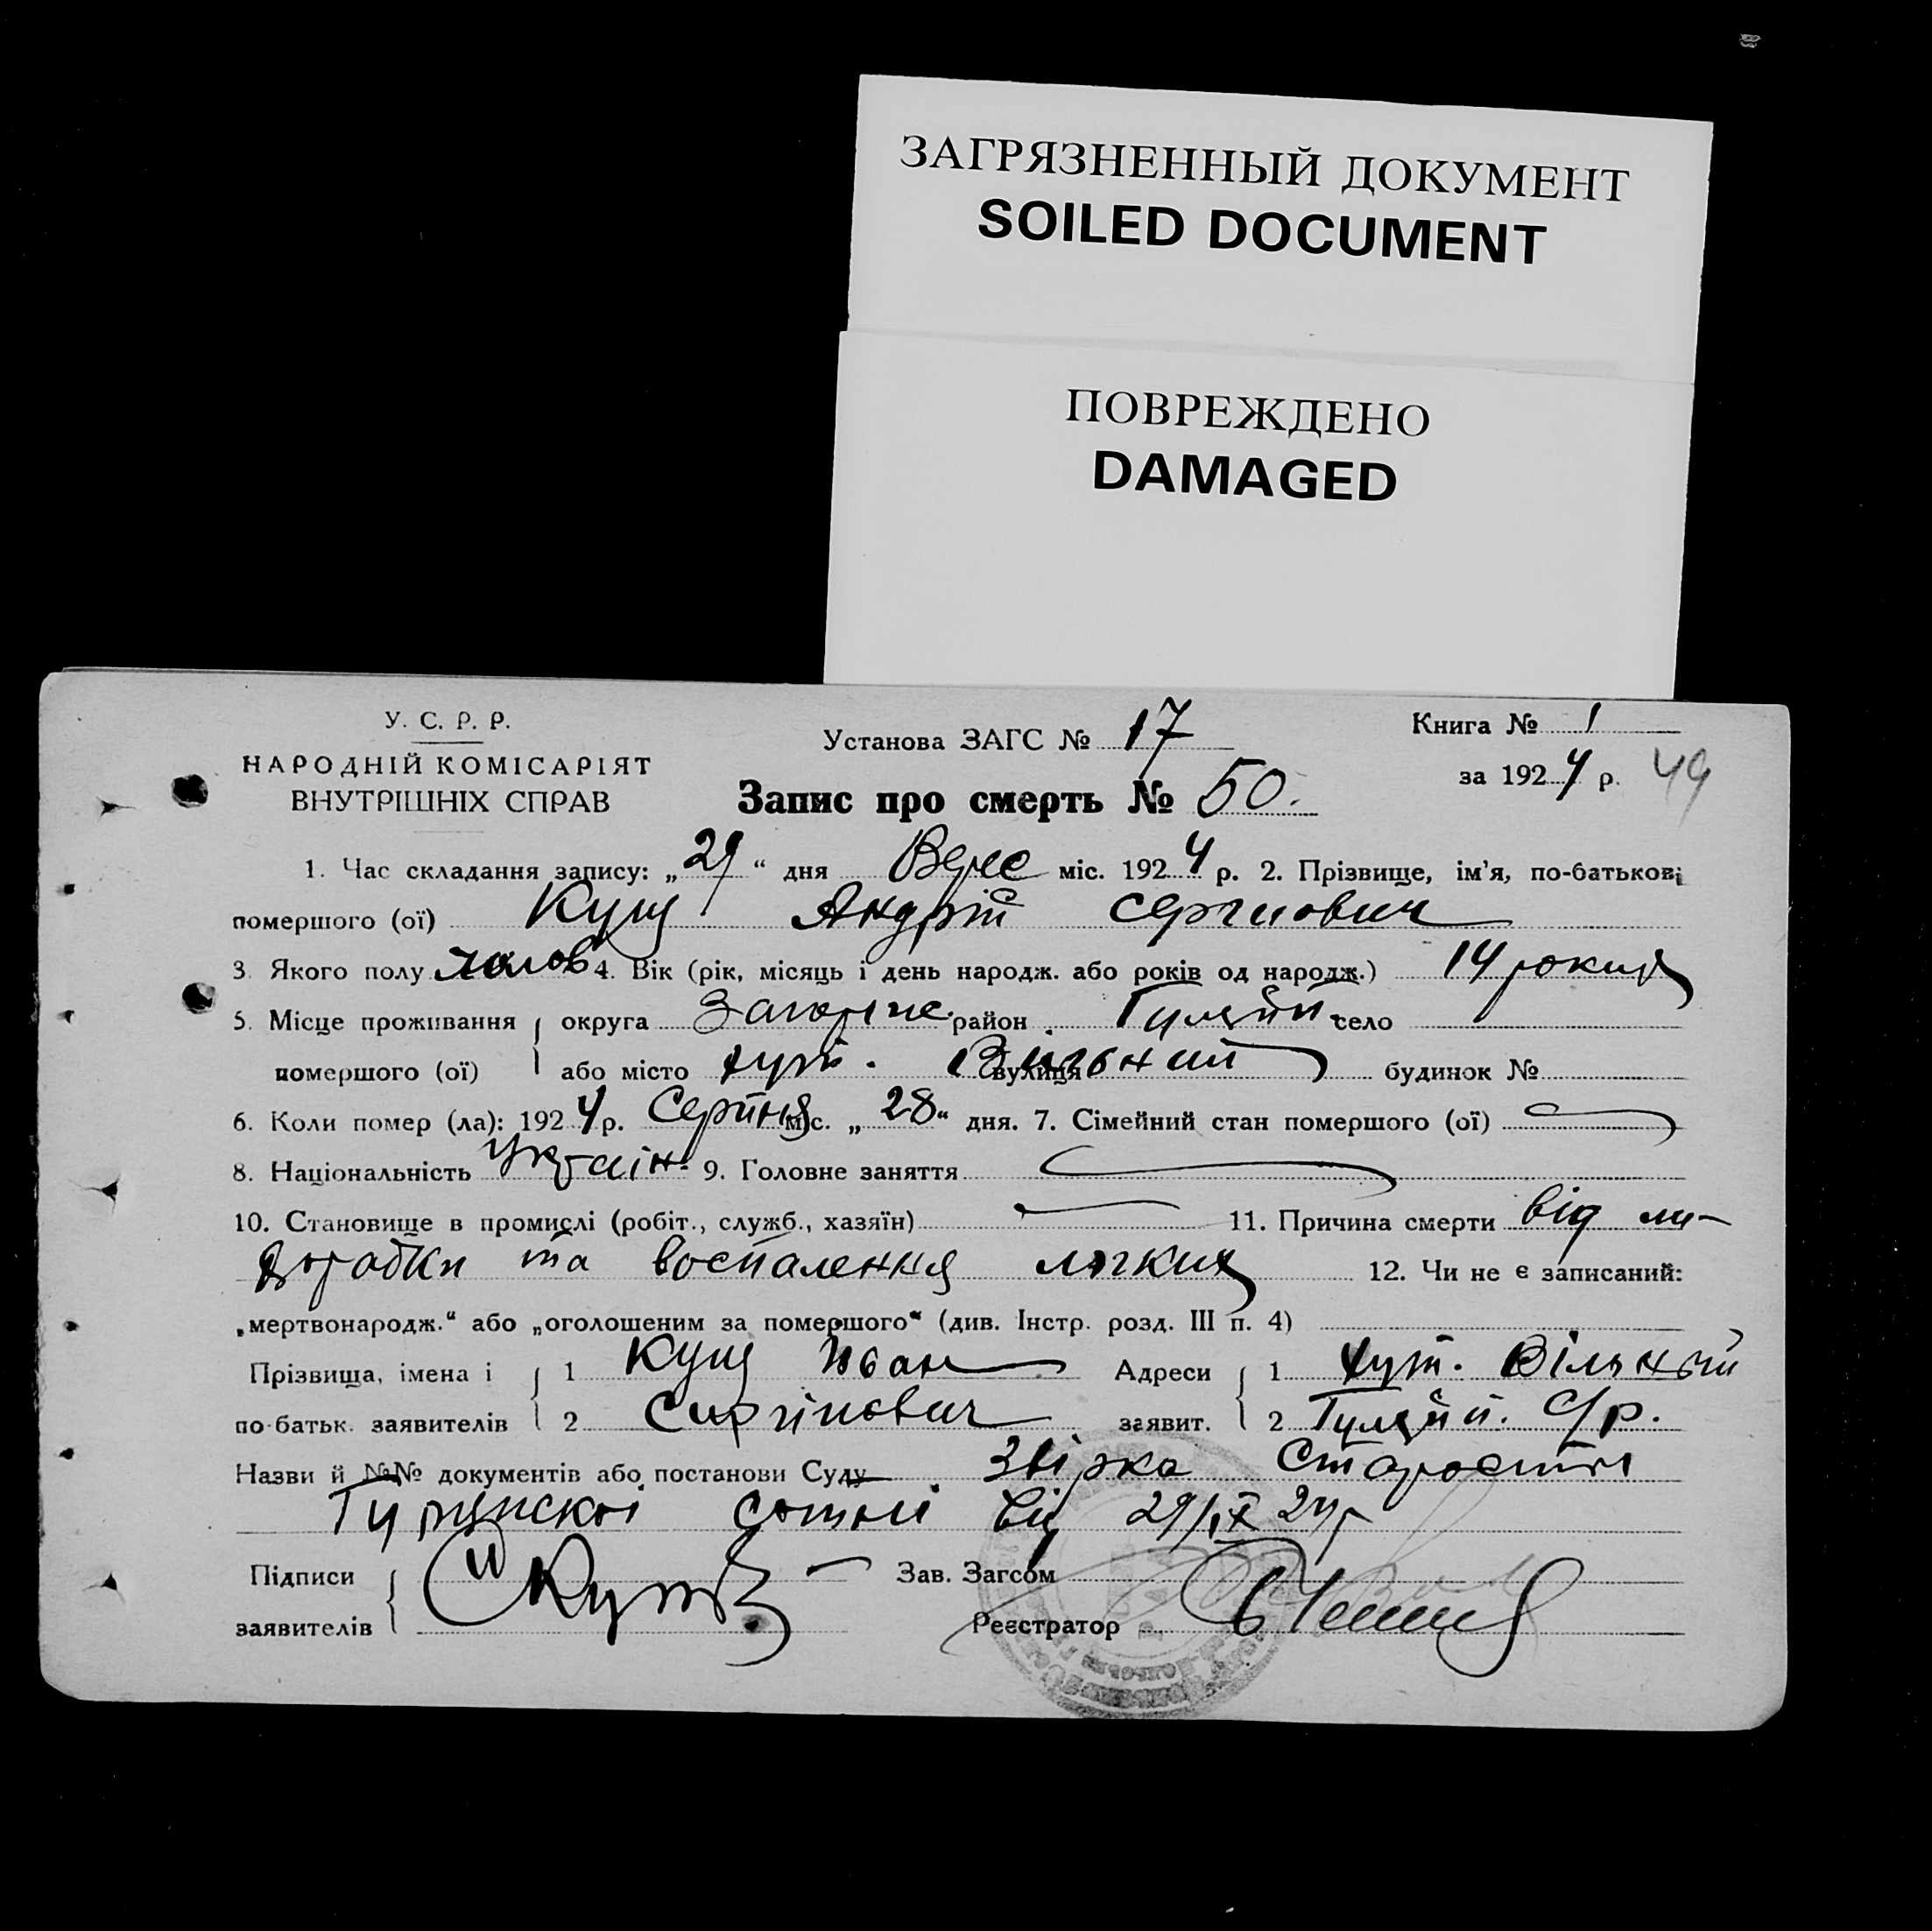 ЗАГРЯЗНЕННЫЙ ДОКУМЕНТ
SOILED DOCUMENT
ПОВРЕЖДЕНО
DAMAGED
У. С. Р. Р.
НАРОДНІЙ КОМІСАРІЯТ
ВНУТРІШНІХ СПРАВ
Установа ЗАГС № 17
Книга № 1
за 1924 р. 49
Запис про смерть № 50.
1. Час складання запису: „29“ дня Верес міс. 1924 р. 2. Прізвище, ім'я, по-батькові
помершого (ої) Кущ Андрій Сергиович
3. Якого полу чолов 4. Вік (рік, місяць і день народж. або років од народж.) 14 роких
5. Місце проживання округа Запоріже район Гуляйп село
помершого (ої) або місто хут. Вильний вулиця будинок №
6. Коли помер (ла): 1924 р. Серпня міс. „28“ дня. 7. Сімейний стан помершого (ої)
8. Національність Україн. 9. Головне заняття
10. Становище в промислі (робіт., служб., хазяїн) 11. Причина смерти від ли-
хорадки та воспалення легких 12. Чи не є записаний:
„мертвонародж.“ або „оголошеним за помершого“ (див. Інстр. розд. III п. 4)
Прізвища, імена і 1 Кущ Иван Адреси 1 хут. Вільний
по-батьк. заявителів 2 Сиргіиович заявит. 2 Гуляйп. С/р.
Назви й №№ документів або постанови Суду Звірка Старости
сотні від 29/IX 24 р
Підписи Зав. Загсом
заявителів Реєстратор